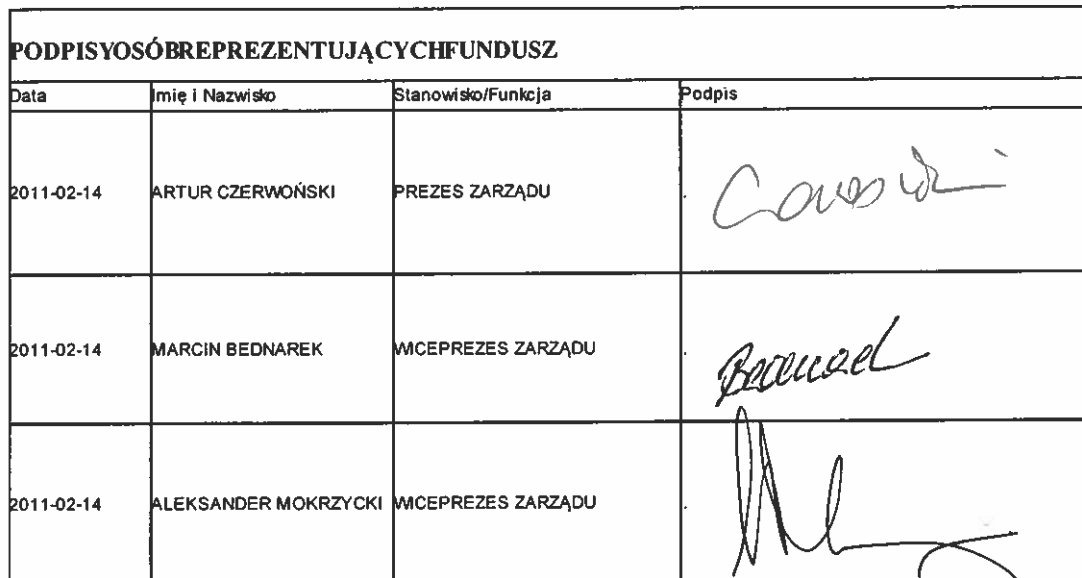 PODPISYOSÓBREPREZENTUJĄCYCHFUNDUSZ
Data Imię i Nazwisko Stanowisko/Funkcja Podpis
2011-02-14 ARTUR CZERWOŃSKI PREZES ZARZĄDU .
2011-02-14 MARCIN BEDNAREK WICEPREZES ZARZĄDU .
2011-02-14 ALEKSANDER MOKRZYCKI WICEPREZES ZARZĄDU .